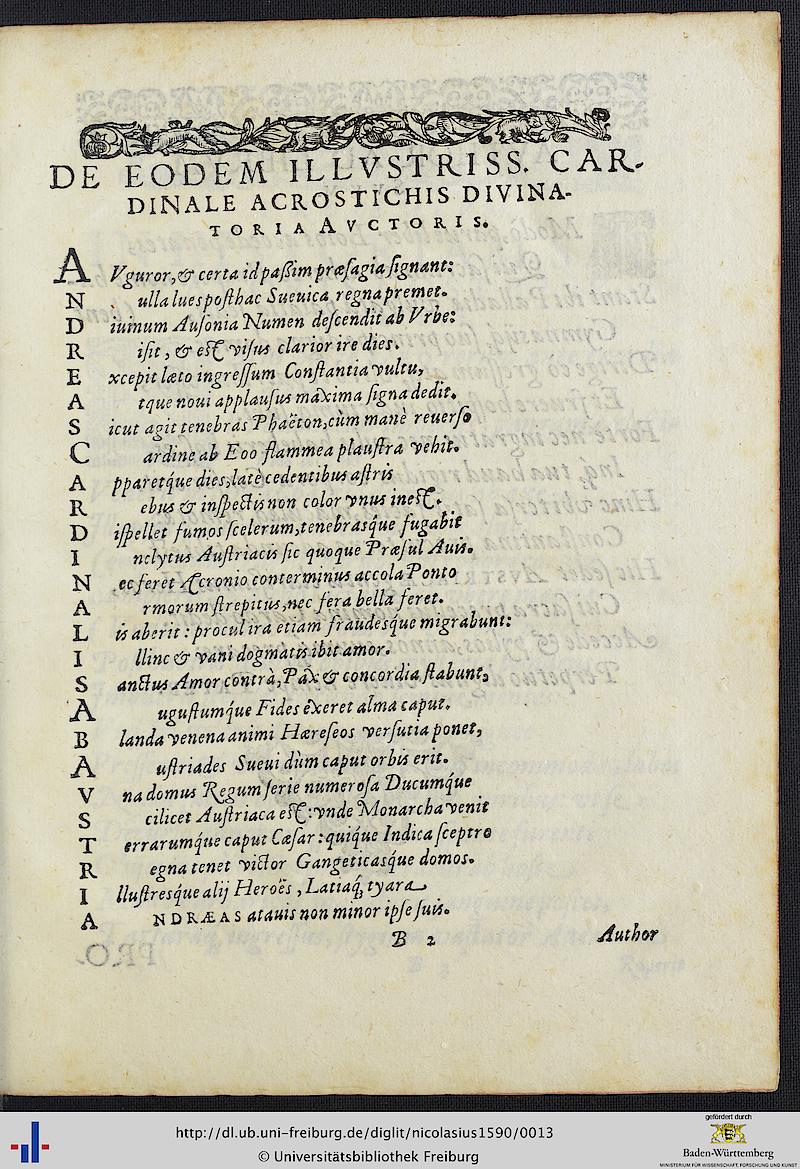 DE EODEM ILLVSTRISS. CAR-
DINALE ACROSTICHIS DIVINA-
TORIA AVCTORIS.
A Vguror, & certa id paßim præſagia ſignant:
N ulla lues poſthac Sueuica regna premet.
D iuinum Auſonia Numen deſcendit ab Vrbe:
R iſit, & eſt viſus clarior ire dies.
E xcepit læto ingreſſum Conſtantia vultu,
A tque noui applauſus maxima ſigna dedit.
S icut agit tenebras Phaëton, cùm manè reuerſo
C ardine ab Eoo flammea plauſtra vehit.
A pparetq́ue dies, latè cedentibus aſtris
R ebus & inſpectis non color vnus ineſt.
D iſpellet fumos ſcelerum, tenebrasq́ue fugabit
I nclytus Auſtriacis ſic quoque Præſul Auis.
N ec feret Acronio conterminus accola Ponto
A rmorum ſtrepitus, nec fera bella feret.
L is aberit: procul ira etiam fraudesq́ue migrabunt:
I llinc & vani dogmatis ibit amor.
S anctus Amor contrà, Pax & concordia ſtabunt,
A uguſtumq́ue Fides exeret alma caput.
B landa venena animi Hæreſeos verſutia ponet,
A uſtriades Sueui dùm caput orbis erit.
V na domus Regum ſerie numeroſa Ducumq́ue
S cilicet Auſtriaca eſt: vnde Monarcha venit
T errarumq́ue caput Cæſar: quiq́ue Indica ſceptro
R egna tenet victor Gangeticasq́ue domos.
I lluſtresq́ue alij Heroës, Latiaq́; tyara
A NDRÆAS atauis non minor ipſe ſuis.
B 2 Author
http://dl.ub.uni-freiburg.de/diglit/nicolasius1590/0013
© Universitätsbibliothek Freiburg
gefördert durch
Baden-Württemberg
MINISTERIUM FÜR WISSENSCHAFT, FORSCHUNG UND KUNST